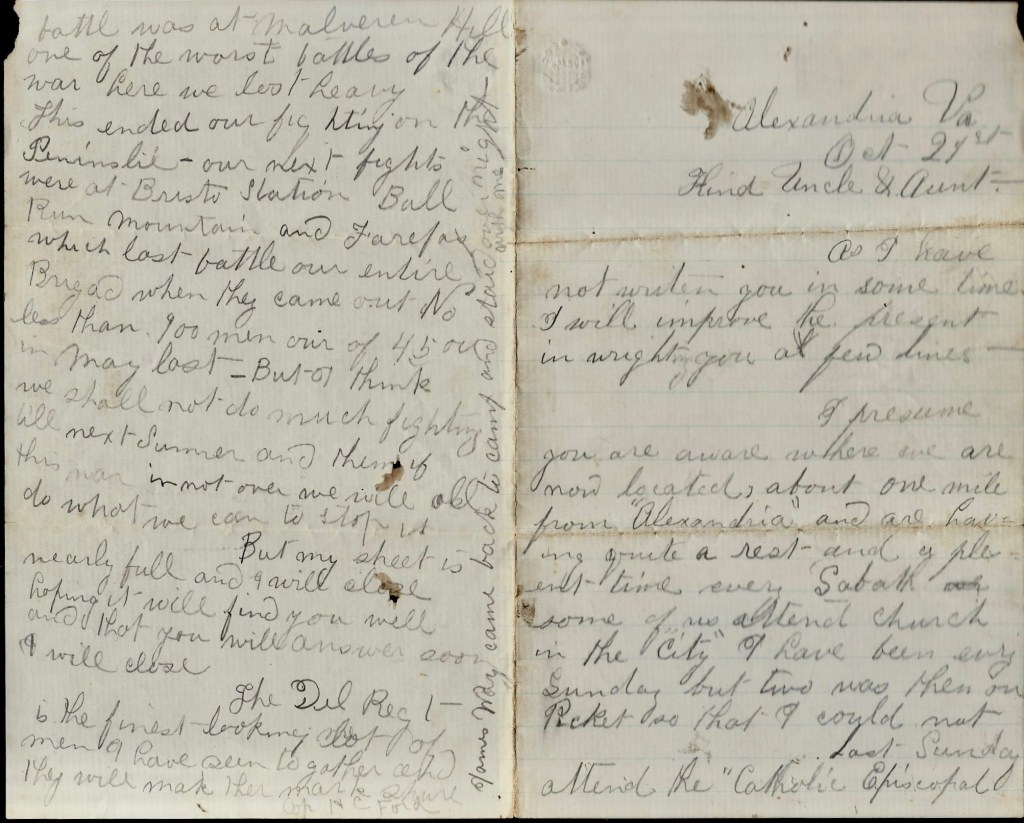 Alexandria Va
Oct 21st
Kind Uncle & Aunt.—
As I have
not writen you in some time
I will improve the present
in wrighting you a few lines —
I presume
you are aware where we are
now located, about one mile
from "Alexandria" and are hav=
ing quite a rest and a ple=
ent time every Sabath
some of us attend church
in the "City" I have been evry
Sunday but two was then on
Picket so that I could not
Last Sunday
attend the "Catholic Episcopal
battl was at Malveren Hill
one of the worst battles of the
war here we lost heavy
This ended our fighting on the
Peninslie - our next fights
were at Bristo Station Ball
Run Mountain and Farefax
which last battle our entire
Brigad when they came out No
less than 900 men our of 4500
in May last - But I think
we shall not do much fighting
till next Summer and them if
this war in not over we will all
do what we can to stop it
But my sheet is
nearly full and I will close
hoping it will find you well
and that you will answer soon
I will close
The Del Reg 1-
is the finest looking lot of
men I have seen to gather and
they will mak ther mark shure
Cop H C Ford
James Way came back to camp and staid over night
with me